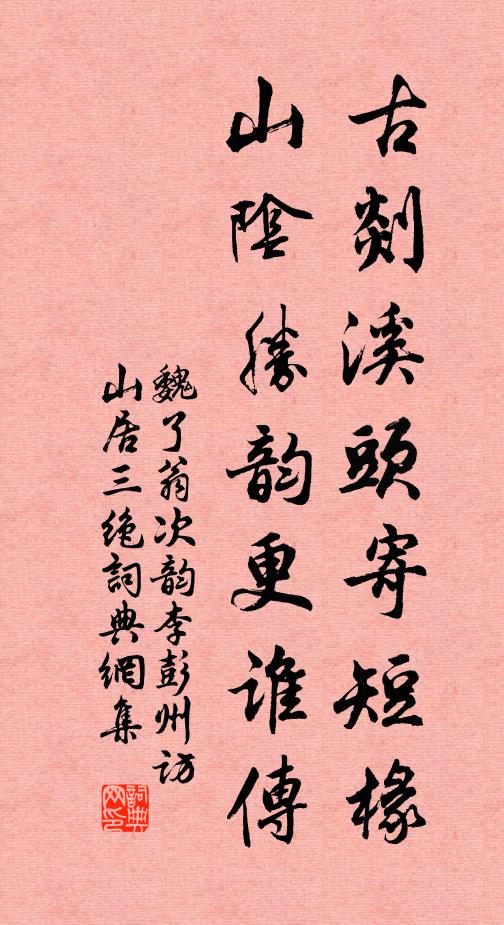 古剡溪頭寄短椽
山陰勝韵更誰傳
魏了翁次韵李彭州访
山居三绝詞典網集
詞典网印